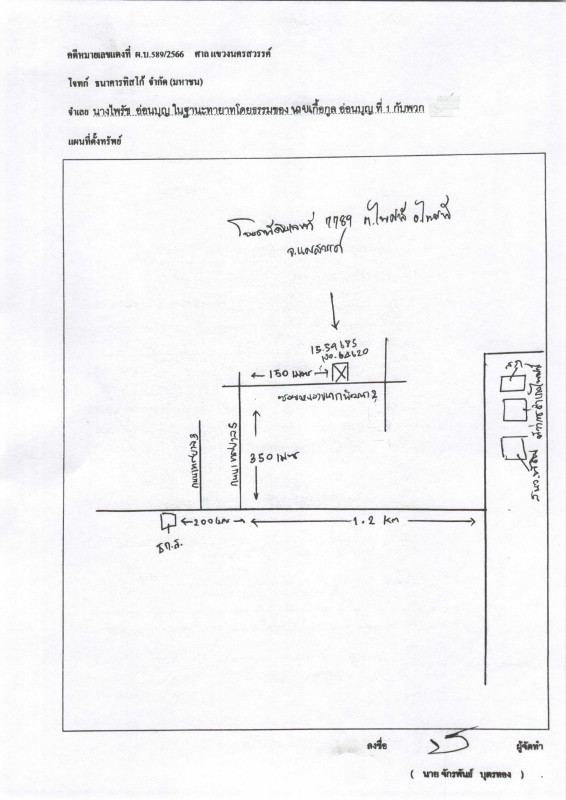 คดีหมายเลขแดงที่ ผ.บ.589/2566 ศาลแขวงนครสวรรค์
โจทก์ ธนาคารทิสโก้ จำกัด (มหาชน)
จำเลย นางไพรัช อ่อนบุญ ในฐานะทายาทโดยธรรมของ นายเกื้อกูล อ่อนบุญ ที่ 1 กับพวก
แผนที่ตั้งทรัพย์
โฉนดที่ดินเลขที่ 7789 ต.ไพศาลี อ.ไพศาลี
จ.นครสวรรค์
15.59685
150 เมตร
ถนนเทศบาล 3
ถนนเทศบาล 5
350 เมตร
200 เมตร
1.2 km
ธ.ก.ส.
สภ.
ที่ว่าการอำเภอไพศาลี
ลงชื่อ ผู้จัดทำ
( นาย จักรพันธ์ บุตรทอง )